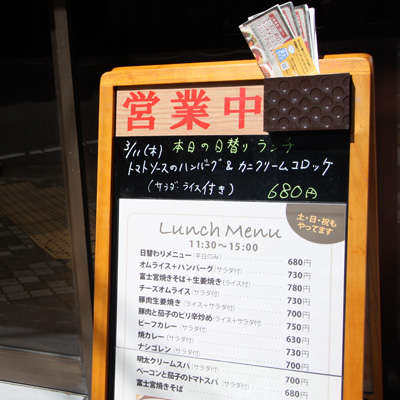 営業中
3/11(木) 本日の日替りランチ
トマトソースのハンバーグ & カニクリームコロッケ
(サラダ・ライス付き) 680円
Lunch Menu
11:30〜15:00
土・日・祝も
やってます
日替わりメニュー(平日のみ) 680円
オムライス+ハンバーグ(サラダ付) 730円
富士宮焼きそば+生姜焼き(ライス付) 780円
チーズオムライス(サラダ付) 730円
豚肉生姜焼き(ライス+サラダ付) 700円
豚肉と茄子のピリ辛炒め(ライス+サラダ付) 750円
ビーフカレー(サラダ付) 630円
焼カレー(サラダ付) 730円
ナシゴレン(サラダ付) 700円
明太クリームスパ(サラダ付) 700円
ベーコンと茄子のトマトスパ(サラダ付) 700円
富士宮焼きそば 680円